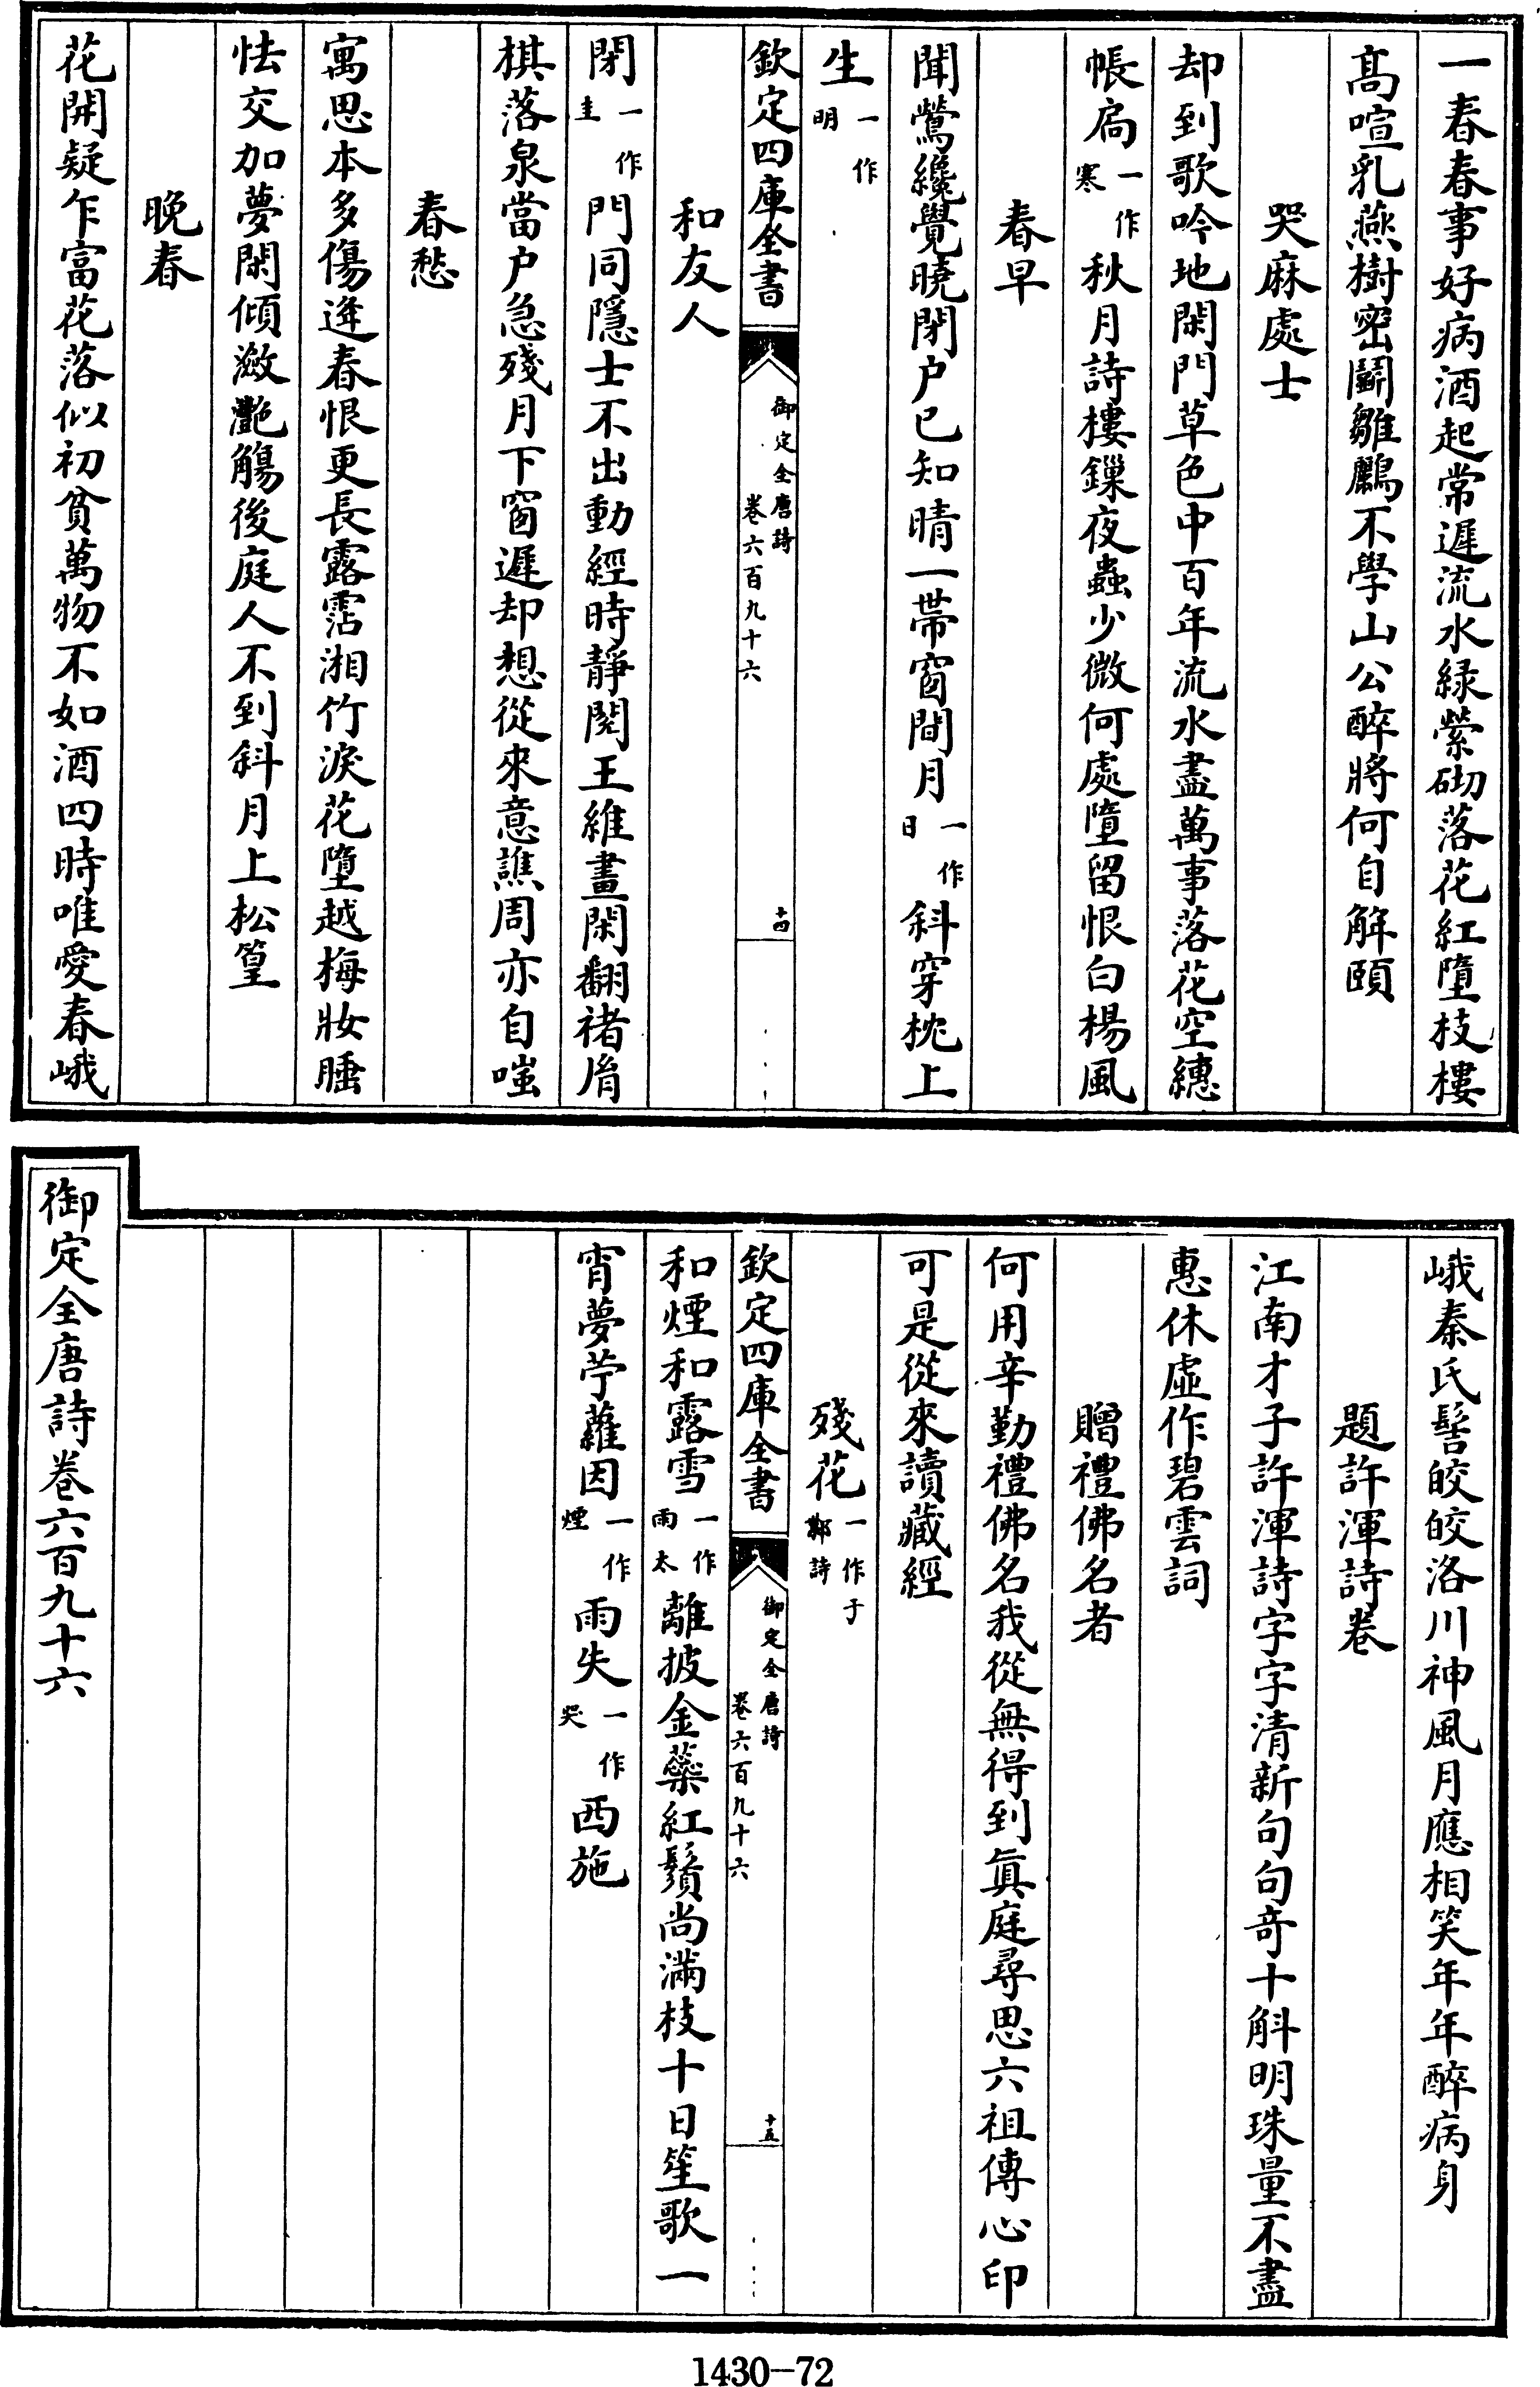 一春春事好病酒起常遲流水緑縈砌落花紅墮枝樓
髙喧乳燕樹密鬭雛鸝不學山公醉將何自解頤
哭麻處士
却到歌吟地閑門草色中百年流水盡萬事落花空繐
帳扃一作寒秋月詩樓鏁夜蟲少微何處墮留恨白楊風
春早
聞鶯纔覺曉閉户已知晴一帯窗間月一作日斜穿枕上
生一作明
欽定四庫全書
御定全唐詩
卷六百九十六
十四
和友人
閉一作圭門同隱士不出動經時靜閲王維畫閑翻禇𦙍
棋落泉當户急殘月下窗遲却想從來意譙周亦自嗤
春愁
寓思本多傷逄春恨更長露霑湘竹淚花墮越梅妝睡
怯交加夢閑傾瀲灩觴後庭人不到斜月上松篁
晚春
花開疑乍富花落似初貧萬物不如酒四時唯愛春峨
峨秦氏髻皎皎洛川神風月應相笑年年醉病身
題許渾詩卷
江南才子許渾詩字字清新句句奇十斛明珠量不盡
惠休虛作碧雲詞
贈禮佛名者
何用辛勤禮佛名我從無得到眞庭尋思六祖傳心印
可是從來讀藏經
殘花一作于鄴詩
欽定四庫全書
御定全唐詩
卷六百九十六
十五
和煙和露雪一作雨太離披金蘂紅鬚尚滿枝十日笙歌一
宵夢苧蘿因一作煙雨失一作哭西施
御定全唐詩卷六百九十六
1430-72